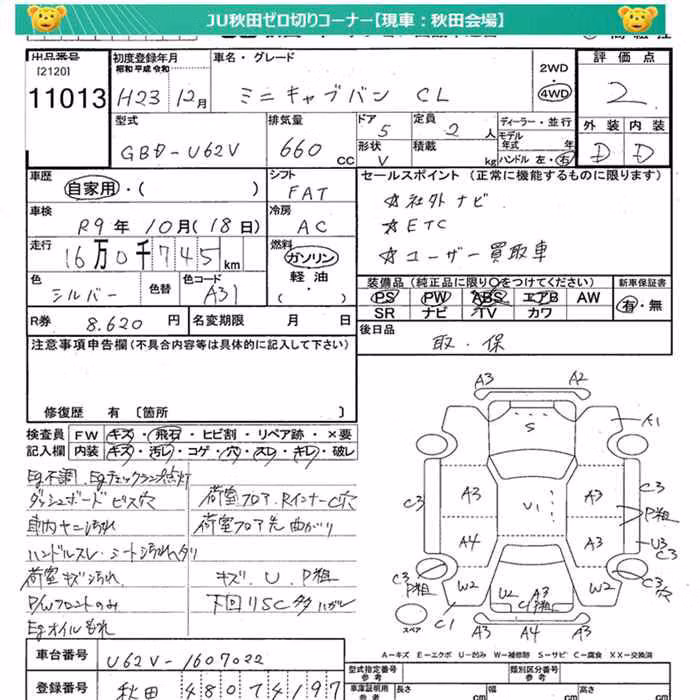 JU秋田ゼロ切りコーナー【現車：秋田会場】
出品番号
[2120]
11013
初度登録年月
昭和 平成 令和
H23 12月
車名・グレード
ミニキャブバン CL
2WD
・
4WD
評価点
2
外装 内装
D D
型式
GBD-U62V
排気量
660 cc
ドア 5
形状 V
定員 2 人
積載 kg
ディーラー・並行
モデル年式 年
ハンドル 左・右
車歴
自家用・( )
シフト
FAT
車検
R9年 10月(18日)
冷房
AC
走行
16万0千745km
燃料
ガソリン
・
軽油
・
( )
色
シルバー
色替
色コード
A31
セールスポイント (正常に機能するものに限ります)
☆社外ナビ
☆ETC
☆ユーザー買取車
装備品 (純正品に限り○をつけてください)
PS PW ABS エアB AW
SR ナビ TV カワ
新車保証書
有・無
R券 8.620 円
名変期限 月 日
後日品
取・保
注意事項申告欄(不具合内容等は具体的に記入して下さい)
修復歴 有 〔箇所 〕
検査員記入欄
FW キズ・飛石・ヒビ割・リペア跡・×要
内装 キズ・汚レ・コゲ・穴・スレ・キレ・破レ
Eg不調、Egチェックランプ点灯
ダッシュボードビス穴
荷室フロア、RインナーC穴
車内ヤニ汚れ
荷室フロア先曲がり
ハンドルスレ シート汚れ
荷室キズ汚れ
キズ、U、P粗
P/Wフロントのみ
下回りSC多
Egオイルもれ
A3 A2
S
A1
C3 A3 U1 A3 C3
P粗
A4 A3 U3
C3
P粗
C3
穴
W2 U2 A3 W2
C1 P粗
スペア
C1
A3 A4 A3
A－キズ E－エクボ U－凹み W－補修跡 S－サビ C－腐食 XX－交換済
車台番号
U62V-1607022
登録番号
秋田 480 4197
型式指定番号
参考
類別区分番号
参考
車庫証明用
参考
長さ cm
幅 cm
高さ cm